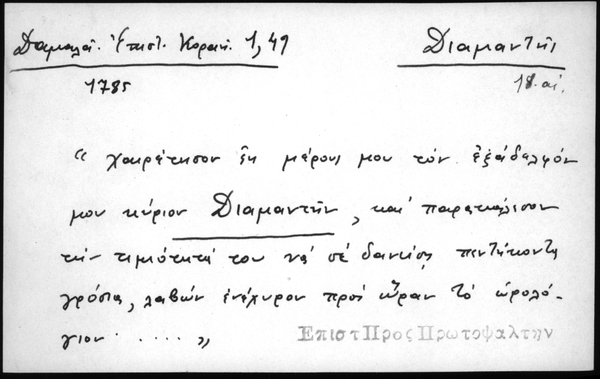 Δαμαλᾶ. Ἐπιστ. Κοραῆ. 1, 49
Διαμαντῆς
1785
18. αἰ.
« χαιρέτησον ἐκ μέρους μου τὸν ἐξάδελφόν
μου κύριον Διαμαντῆν, καὶ παρακάλεσον
τὴν τιμιότητά του νὰ σὲ δανείσῃ πεντήκοντα
γρόσια, λαβὼν ἐνέχυρον πρὸς ὥραν τὸ ὡρολό-
γιον ..... »
ΕπιστΠροςΠρωτοψαλτην